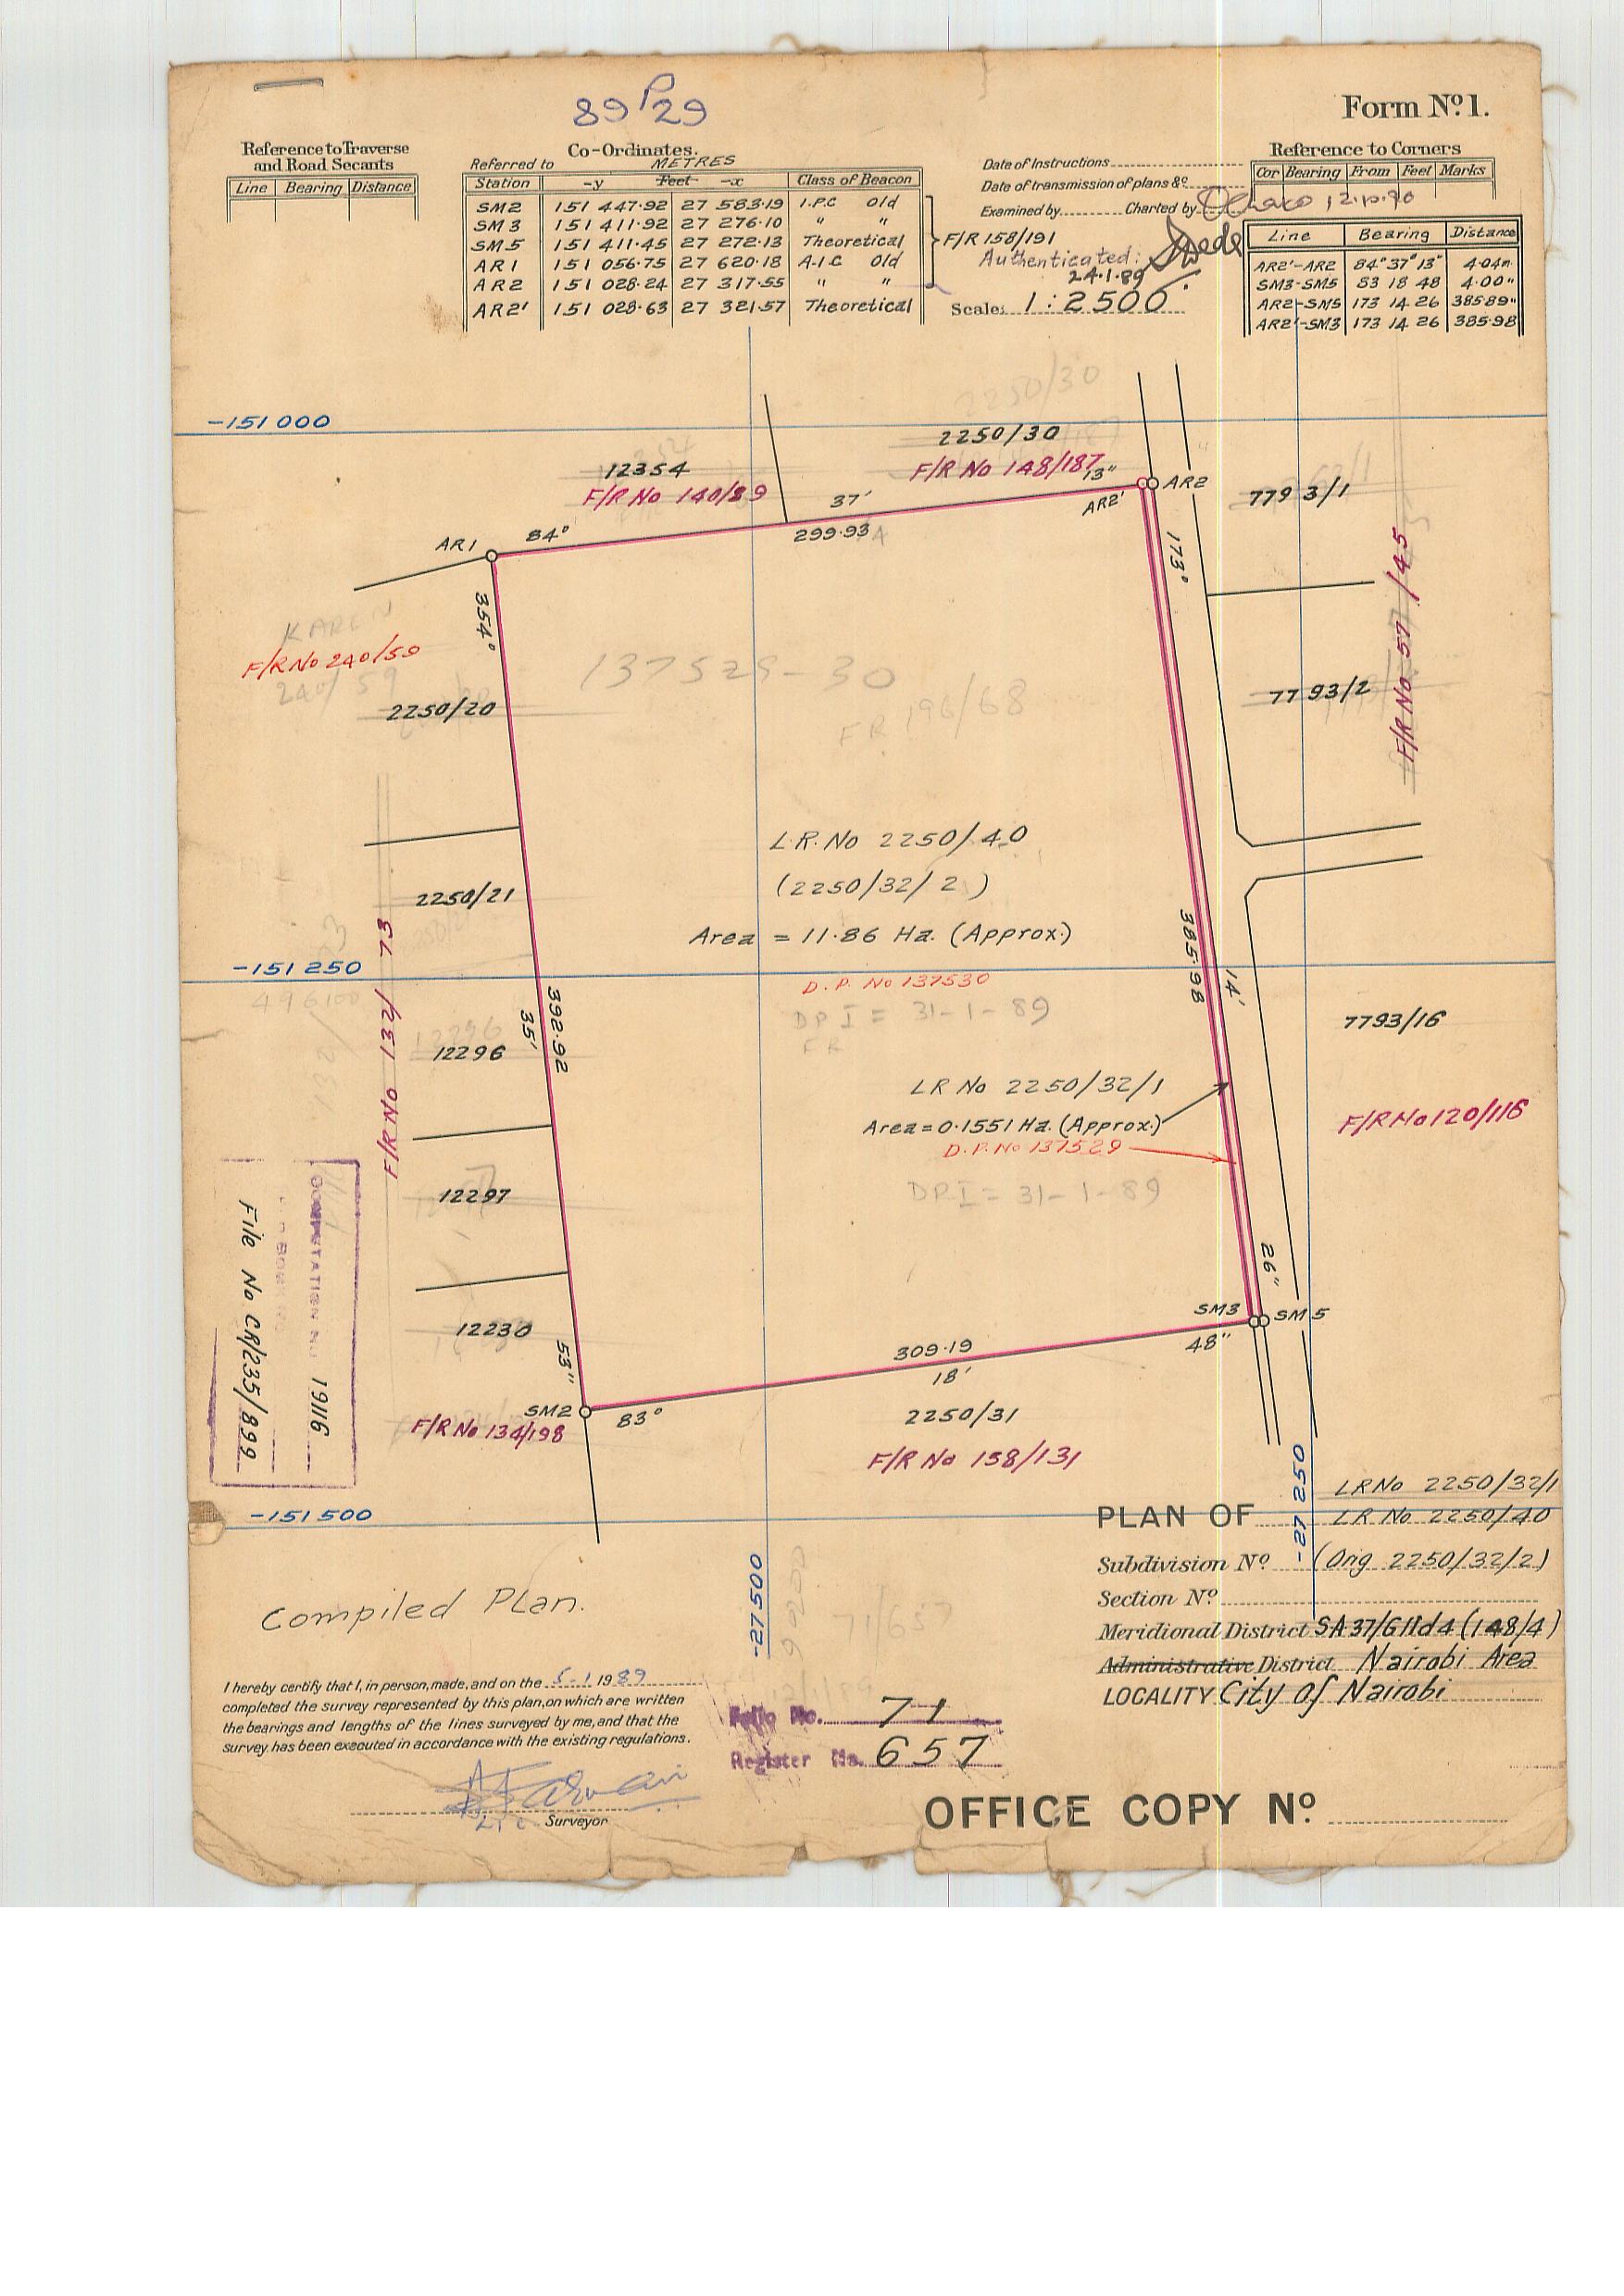 89 P 29
Form Nº 1.
Reference to Traverse
and Road Secants
Line Bearing Distance
Co-Ordinates.
Referred to METRES
Station -y Feet -x Class of Beacon
SM2 151 447·92 27 583·19 I.P.C Old
SM3 151 411·92 27 276·10 " "
SM5 151 411·45 27 272·13 Theoretical
AR1 151 056·75 27 620·18 A·I·C Old
AR2 151 028·24 27 317·55 " "
AR2' 151 028·63 27 321·57 Theoretical
F/R 158/191
Date of Instructions
Date of transmission of plans &c
Examined by Charted by
Authenticated:
24·1·89
Scale: 1:2500
Reference to Corners
Cor Bearing From Feet Marks
Line Bearing Distance
AR2'-AR2 84° 37' 13" 4·04m
SM3-SM5 83 18 48 4·00"
AR2-SM5 173 14 26 385·89"
AR2'-SM3 173 14 26 385·98
2250/30
-151 000
2250/30
12354
F/R No 148/187
F/R No 140/89
84° 37' 13"
299·93
AR1
AR2'
AR2
7793/1
173°
354°
KAREN
F/R No 240/59
240/59
137529-30
FR 196/68
2250/20
7793/2
F/R No 57/45
L.R. No 2250/40
(2250/32/2)
Area = 11·86 Ha. (Approx.)
2250/21
385·98
-151 250
D.P. No 137530
DP I = 31-1-89
FR
14'
7793/16
F/R No 132/73
392·92
35'
12296
LR No 2250/32/1
Area = 0·1551 Ha. (Approx.)
D.P. No 137529
DP I = 31-1-89
F/R No 120/116
12297
26"
12230
53"
SM3
SM5
309·19
48"
18'
SM2
83°
F/R No 134/198
2250/31
F/R No 158/131
COMPUTATION No 19116
File No CR/235/899
-151 500
-27 500
-27 250
71/657
PLAN OF LR No 2250/32/1
LR No 2250/40
Subdivision Nº (Orig 2250/32/2)
Section Nº
Meridional District SA 37/G11d4 (148/4)
Administrative District Nairobi Area
LOCALITY City of Nairobi
Compiled Plan.
I hereby certify that I, in person, made, and on the 5-1 1989
completed the survey represented by this plan, on which are written
the bearings and lengths of the lines surveyed by me, and that the
survey has been executed in accordance with the existing regulations.
Surveyor
Folio No. 71
Register No. 657
OFFICE COPY Nº